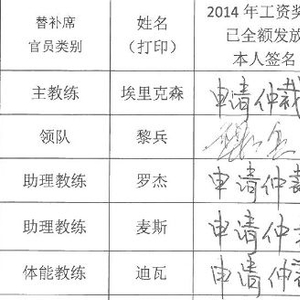 替补席
官员类别
姓名
(打印)
2014 年工资奖
已全额发放
本人签名
主教练 埃里克森 申请仲裁
领队 黎兵
助理教练 罗杰 申请仲裁
助理教练 麦斯 申请仲
体能教练 迪瓦 申请仲裁